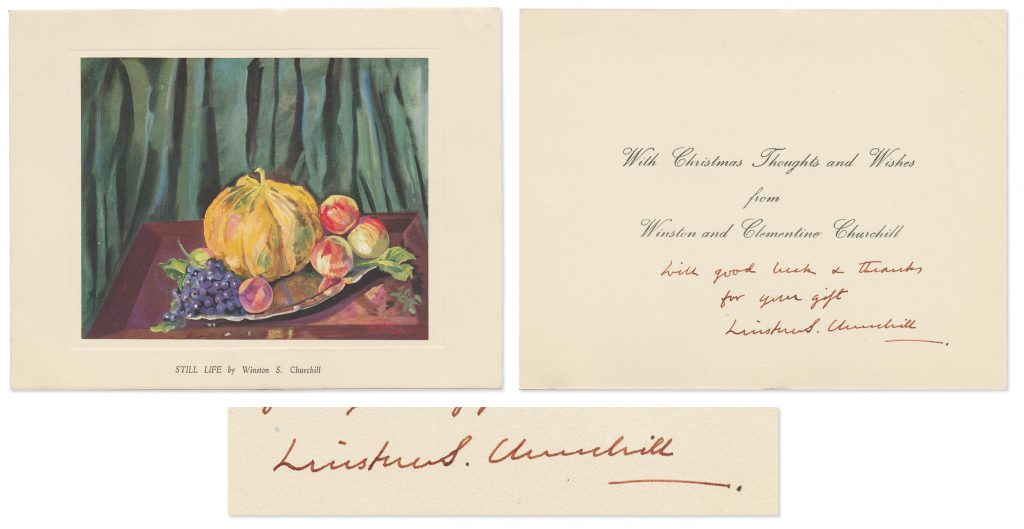 STILL LIFE by Winston S. Churchill
With Christmas Thoughts and Wishes
from
Winston and Clementine Churchill
With good luck & thanks
for your gift
Winston S. Churchill
Winston S. Churchill